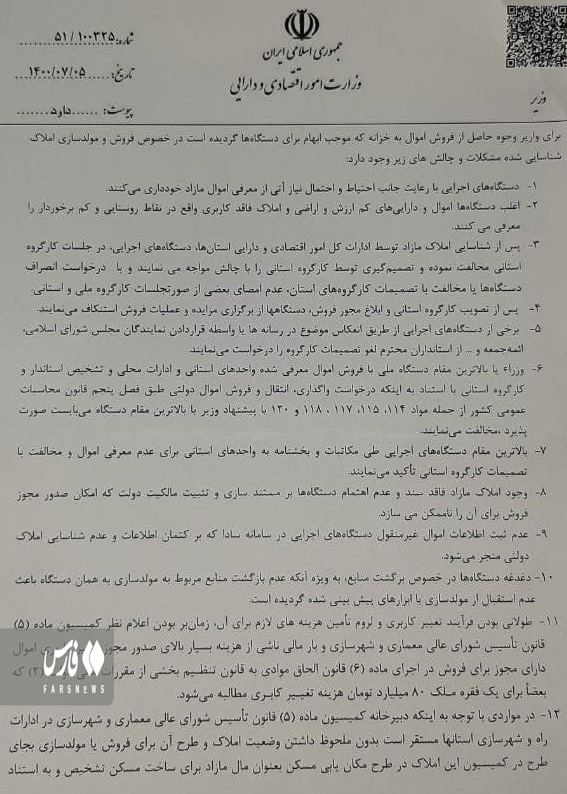 جمهوری اسلامی ایران
وزارت امور اقتصادی و دارایی
وزیر
شماره: ۵۱/۱۰۰۳۲۵
تاریخ: ۱۴۰۰/۰۷/۰۵
پیوست: دارد
برای واریز وجوه حاصل از فروش اموال به خزانه که موجب ابهام برای دستگاه‌ها گردیده است در خصوص فروش و مولدسازی املاک
شناسایی شده مشکلات و چالش های زیر وجود دارد:
۱- دستگاه‌های اجرایی با رعایت جانب احتیاط و احتمال نیاز آتی از معرفی اموال مازاد خودداری می‌کنند.
۲- اغلب دستگاه‌ها اموال و دارایی‌های کم ارزش و اراضی و املاک فاقد کاربری واقع در نقاط روستایی و کم برخوردار را
معرفی می کنند.
۳- پس از شناسایی املاک مازاد توسط ادارات کل امور اقتصادی و دارایی استان‌ها، دستگاه‌های اجرایی، در جلسات کارگروه
استانی مخالفت نموده و تصمیم‌گیری توسط کارگروه استانی را با چالش مواجه می نمایند و با درخواست انصراف
دستگاه‌ها یا مخالفت با تصمیمات کارگروه‌های استان، عدم امضای بعضی از صورتجلسات کارگروه ملی و استانی.
۴- پس از تصویب کارگروه استانی و ابلاغ مجوز فروش، دستگاهها از برگزاری مزایده و عملیات فروش استنکاف می‌نمایند.
۵- برخی از دستگاه‌های اجرایی از طریق انعکاس موضوع در رسانه ها یا واسطه قراردادن نمایندگان مجلس شورای اسلامی،
ائمه‌جمعه و ... از استانداران محترم لغو تصمیمات کارگروه را درخواست می‌نمایند.
۶- وزراء یا بالاترین مقام دستگاه ملی با فروش اموال معرفی شده واحدهای استانی و ادارات محلی و تشخیص استاندار و
کارگروه استانی با استناد به اینکه درخواست واگذاری، انتقال و فروش اموال دولتی طبق فصل پنجم قانون محاسبات
عمومی کشور از جمله مواد ۱۱۴، ۱۱۵، ۱۱۷، ۱۱۸ و ۱۲۰ با پیشنهاد وزیر یا بالاترین مقام دستگاه می‌بایست صورت
پذیرد ،مخالفت می‌نمایند.
۷- بالاترین مقام دستگاه‌های اجرایی طی مکاتبات و بخشنامه به واحدهای استانی برای عدم معرفی اموال و مخالفت با
تصمیمات کارگروه استانی تأکید می‌نمایند.
۸- وجود املاک مازاد فاقد سند و عدم اهتمام دستگاه‌ها بر مستند سازی و تثبیت مالکیت دولت که امکان صدور مجوز
فروش برای آن را ناممکن می سازد.
۹- عدم ثبت اطلاعات اموال غیرمنقول دستگاه‌های اجرایی در سامانه سادا که بر کتمان اطلاعات و عدم شناسایی املاک
دولتی منجر می‌شود.
۱۰- دغدغه دستگاه‌ها در خصوص برگشت منابع، به ویژه آنکه عدم بازگشت منابع مربوط به مولدسازی به همان دستگاه باعث
عدم استقبال از مولدسازی با ابزارهای پیش بینی شده گردیده است.
۱۱- طولانی بودن فرآیند تغییر کاربری و لزوم تأمین هزینه های لازم برای آن، زمان‌بر بودن اعلام نظر کمیسیون ماده (۵)
قانون تأسیس شورای عالی معماری و شهرسازی و بار مالی ناشی از هزینه بسیار بالای صدور مجوز اموال
دارای مجوز برای فروش در اجرای ماده (۶) قانون الحاق موادی به قانون تنظیم بخشی از مقررات (۲) که
بعضاً برای یک فقره ملک ۸۰ میلیارد تومان هزینه تغییر کاربری مطالبه می‌شود.
۱۲- در مواردی با توجه به اینکه دبیرخانه کمیسیون ماده (۵) قانون تأسیس شورای عالی معماری و شهرسازی در ادارات
راه و شهرسازی استانها مستقر است بدون ملحوظ داشتن وضعیت املاک و طرح آن برای فروش یا مولدسازی بجای
طرح در کمیسیون این املاک در طرح مکان یابی مسکن بعنوان مال مازاد برای ساخت مسکن تشخیص و به استناد
فارس
FARSNEWS